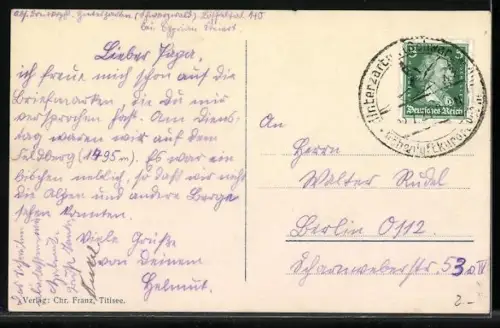 Hinterzarten (Schwarzwald)
bei
Lieber Papa,
ich freue mich schon auf die
Briefmarken die Du mir
versprochen hast. Am Diens-
tag waren wir auf dem
Feldberg (1495m). Es war ein
bischen neblig, so daß wir nicht
die Alpen und andere Berge
sehen konnten.
Viele Grüße
von Deinem
Helmut.
Verlag: Chr. Franz, Titisee.
Deutsches Reich
Hinterzarten
An
Herrn
Walter Rudel
Berlin O112
Scharnweberstr. 53
2.-